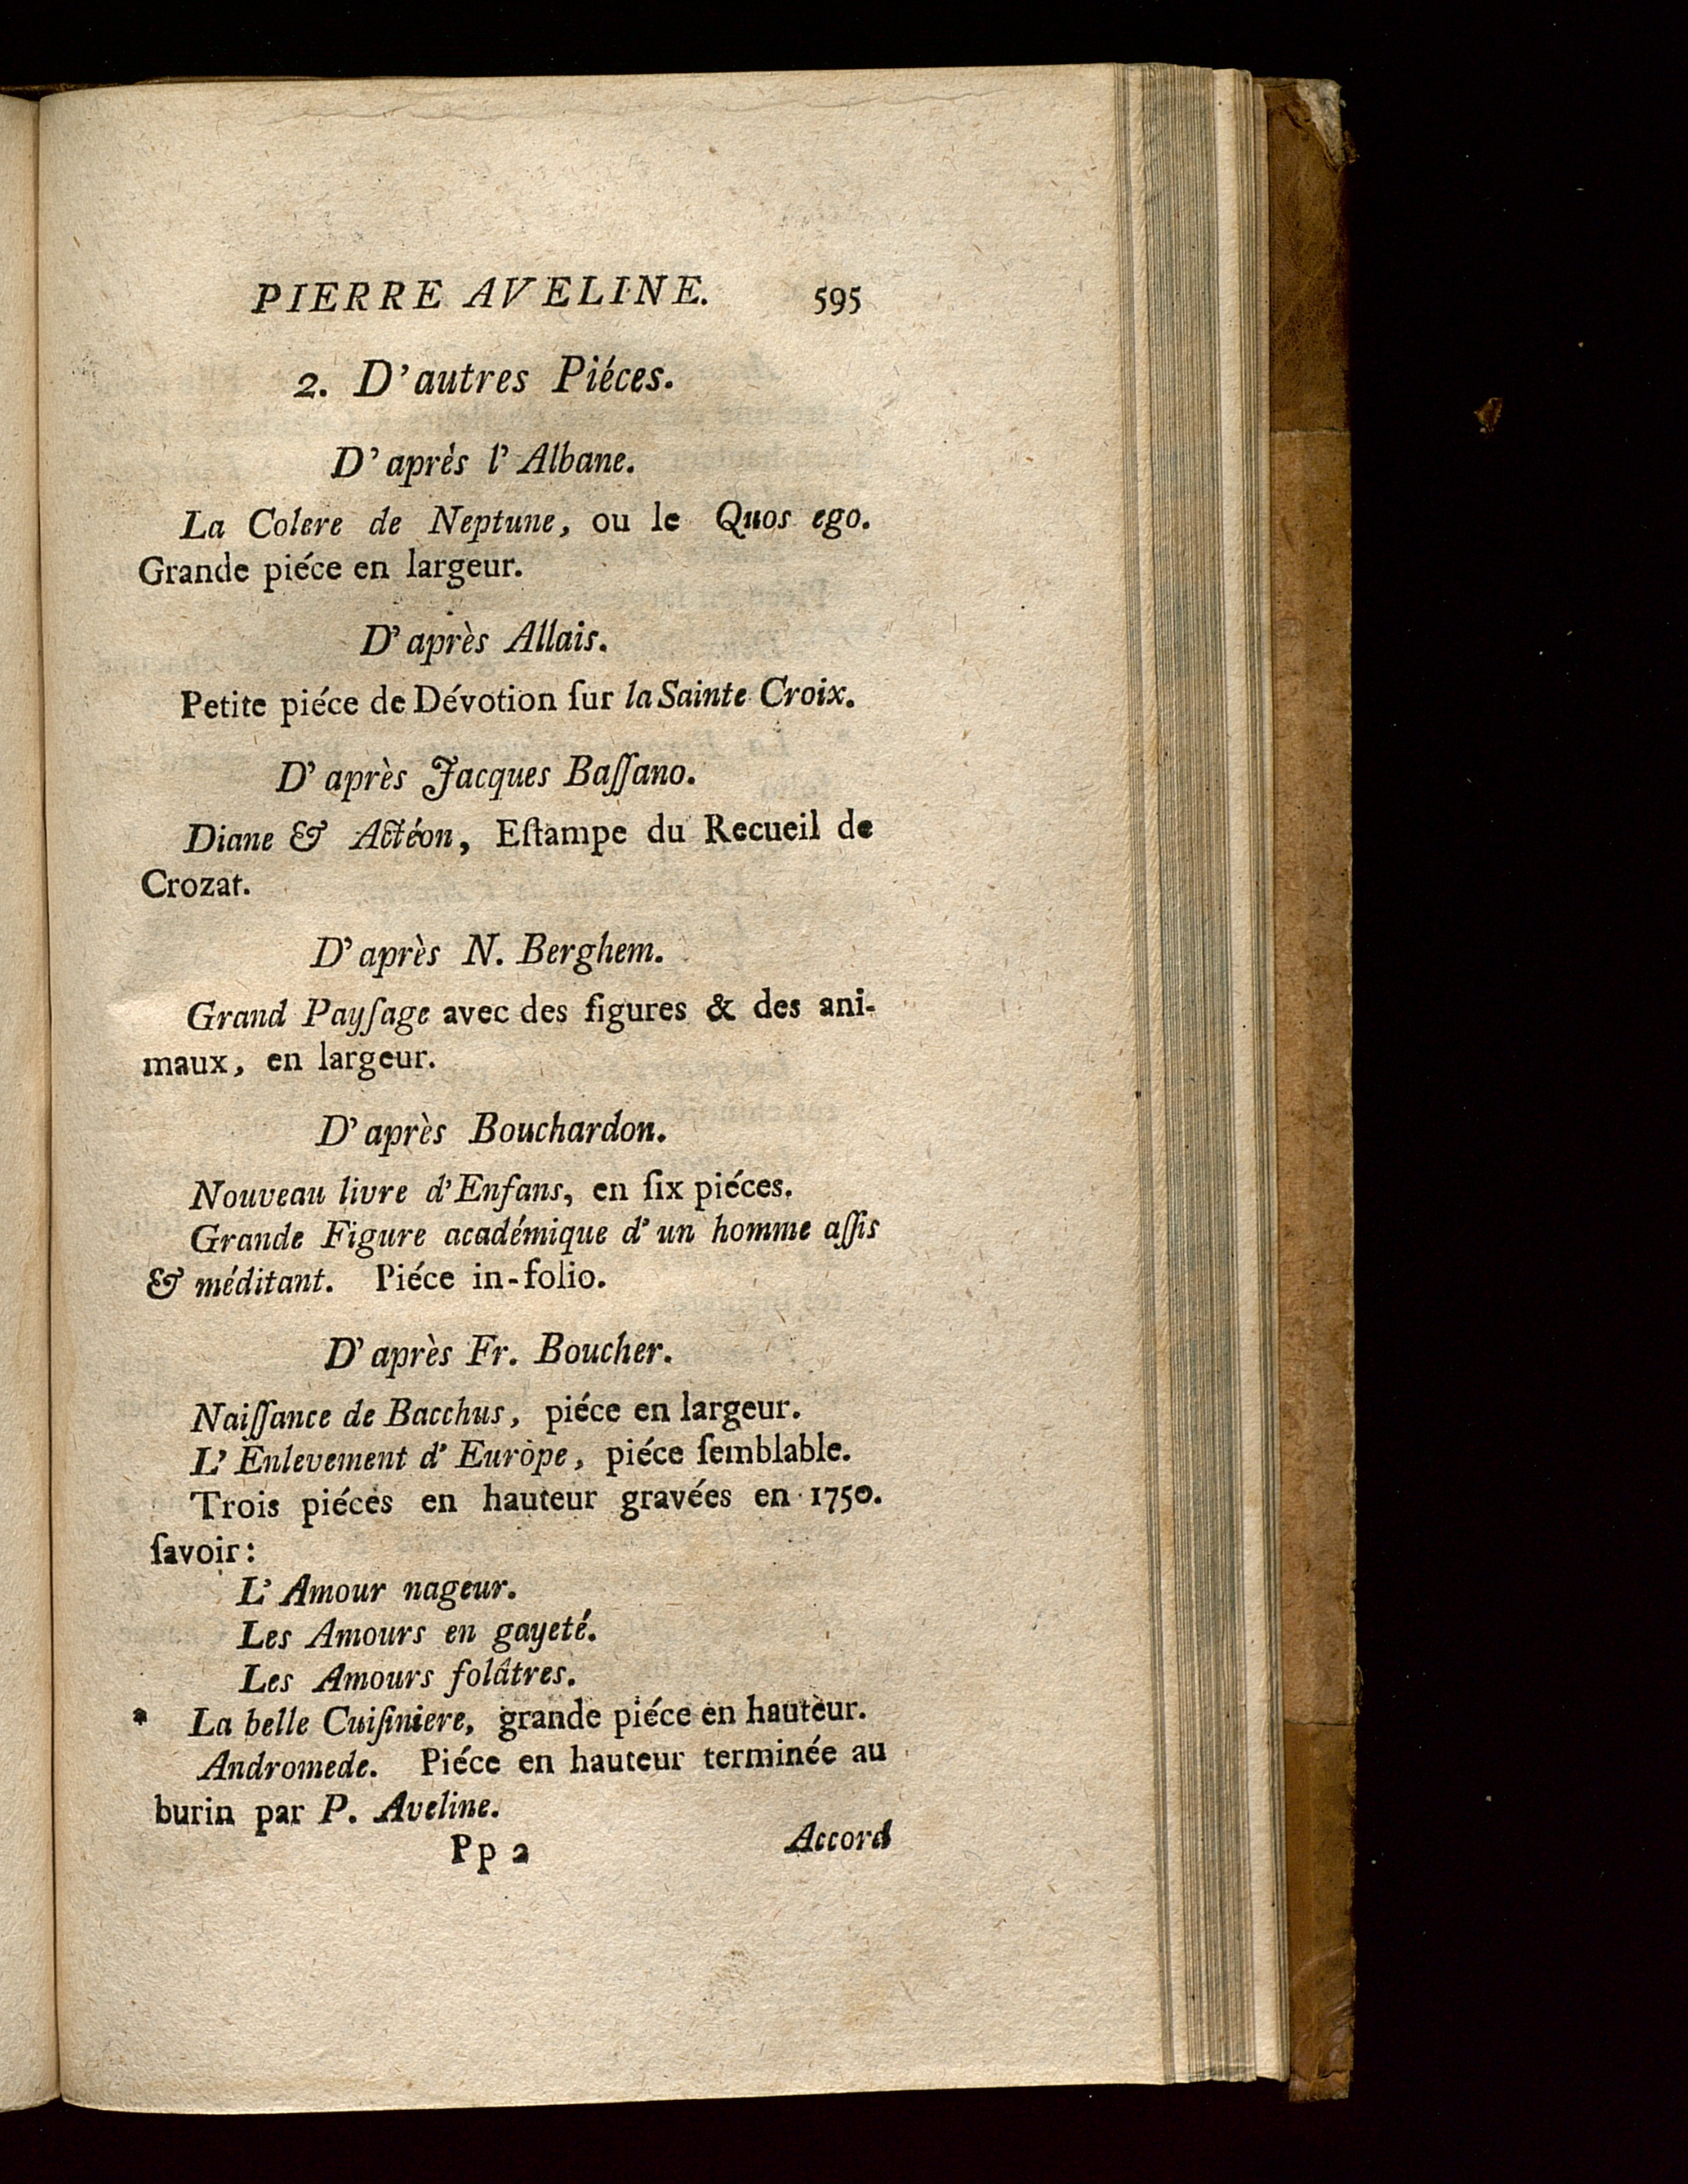 PIERRE AVELINE. 595
2. D'autres Piéces.
D'après l'Albane.
La Colere de Neptune, ou le Quos ego.
Grande piéce en largeur.
D'après Allais.
Petite piéce de Dévotion ſur la Sainte Croix.
D'après Jacques Baſſano.
Diane & Actéon, Eſtampe du Recueil de
Crozat.
D'après N. Berghem.
Grand Payſage avec des figures & des ani-
maux, en largeur.
D'après Bouchardon.
Nouveau livre d'Enfans, en ſix piéces.
Grande Figure académique d'un homme aſſis
& méditant. Piéce in-folio.
D'après Fr. Boucher.
Naiſſance de Bacchus, piéce en largeur.
L'Enlevement d'Europe, piéce ſemblable.
Trois piéces en hauteur gravées en 1750.
ſavoir:
L'Amour nageur.
Les Amours en gayeté.
Les Amours folâtres.
* La belle Cuiſiniere, grande piéce en hauteur.
Andromede. Piéce en hauteur terminée au
burin par P. Aveline.
Pp 2 Accord